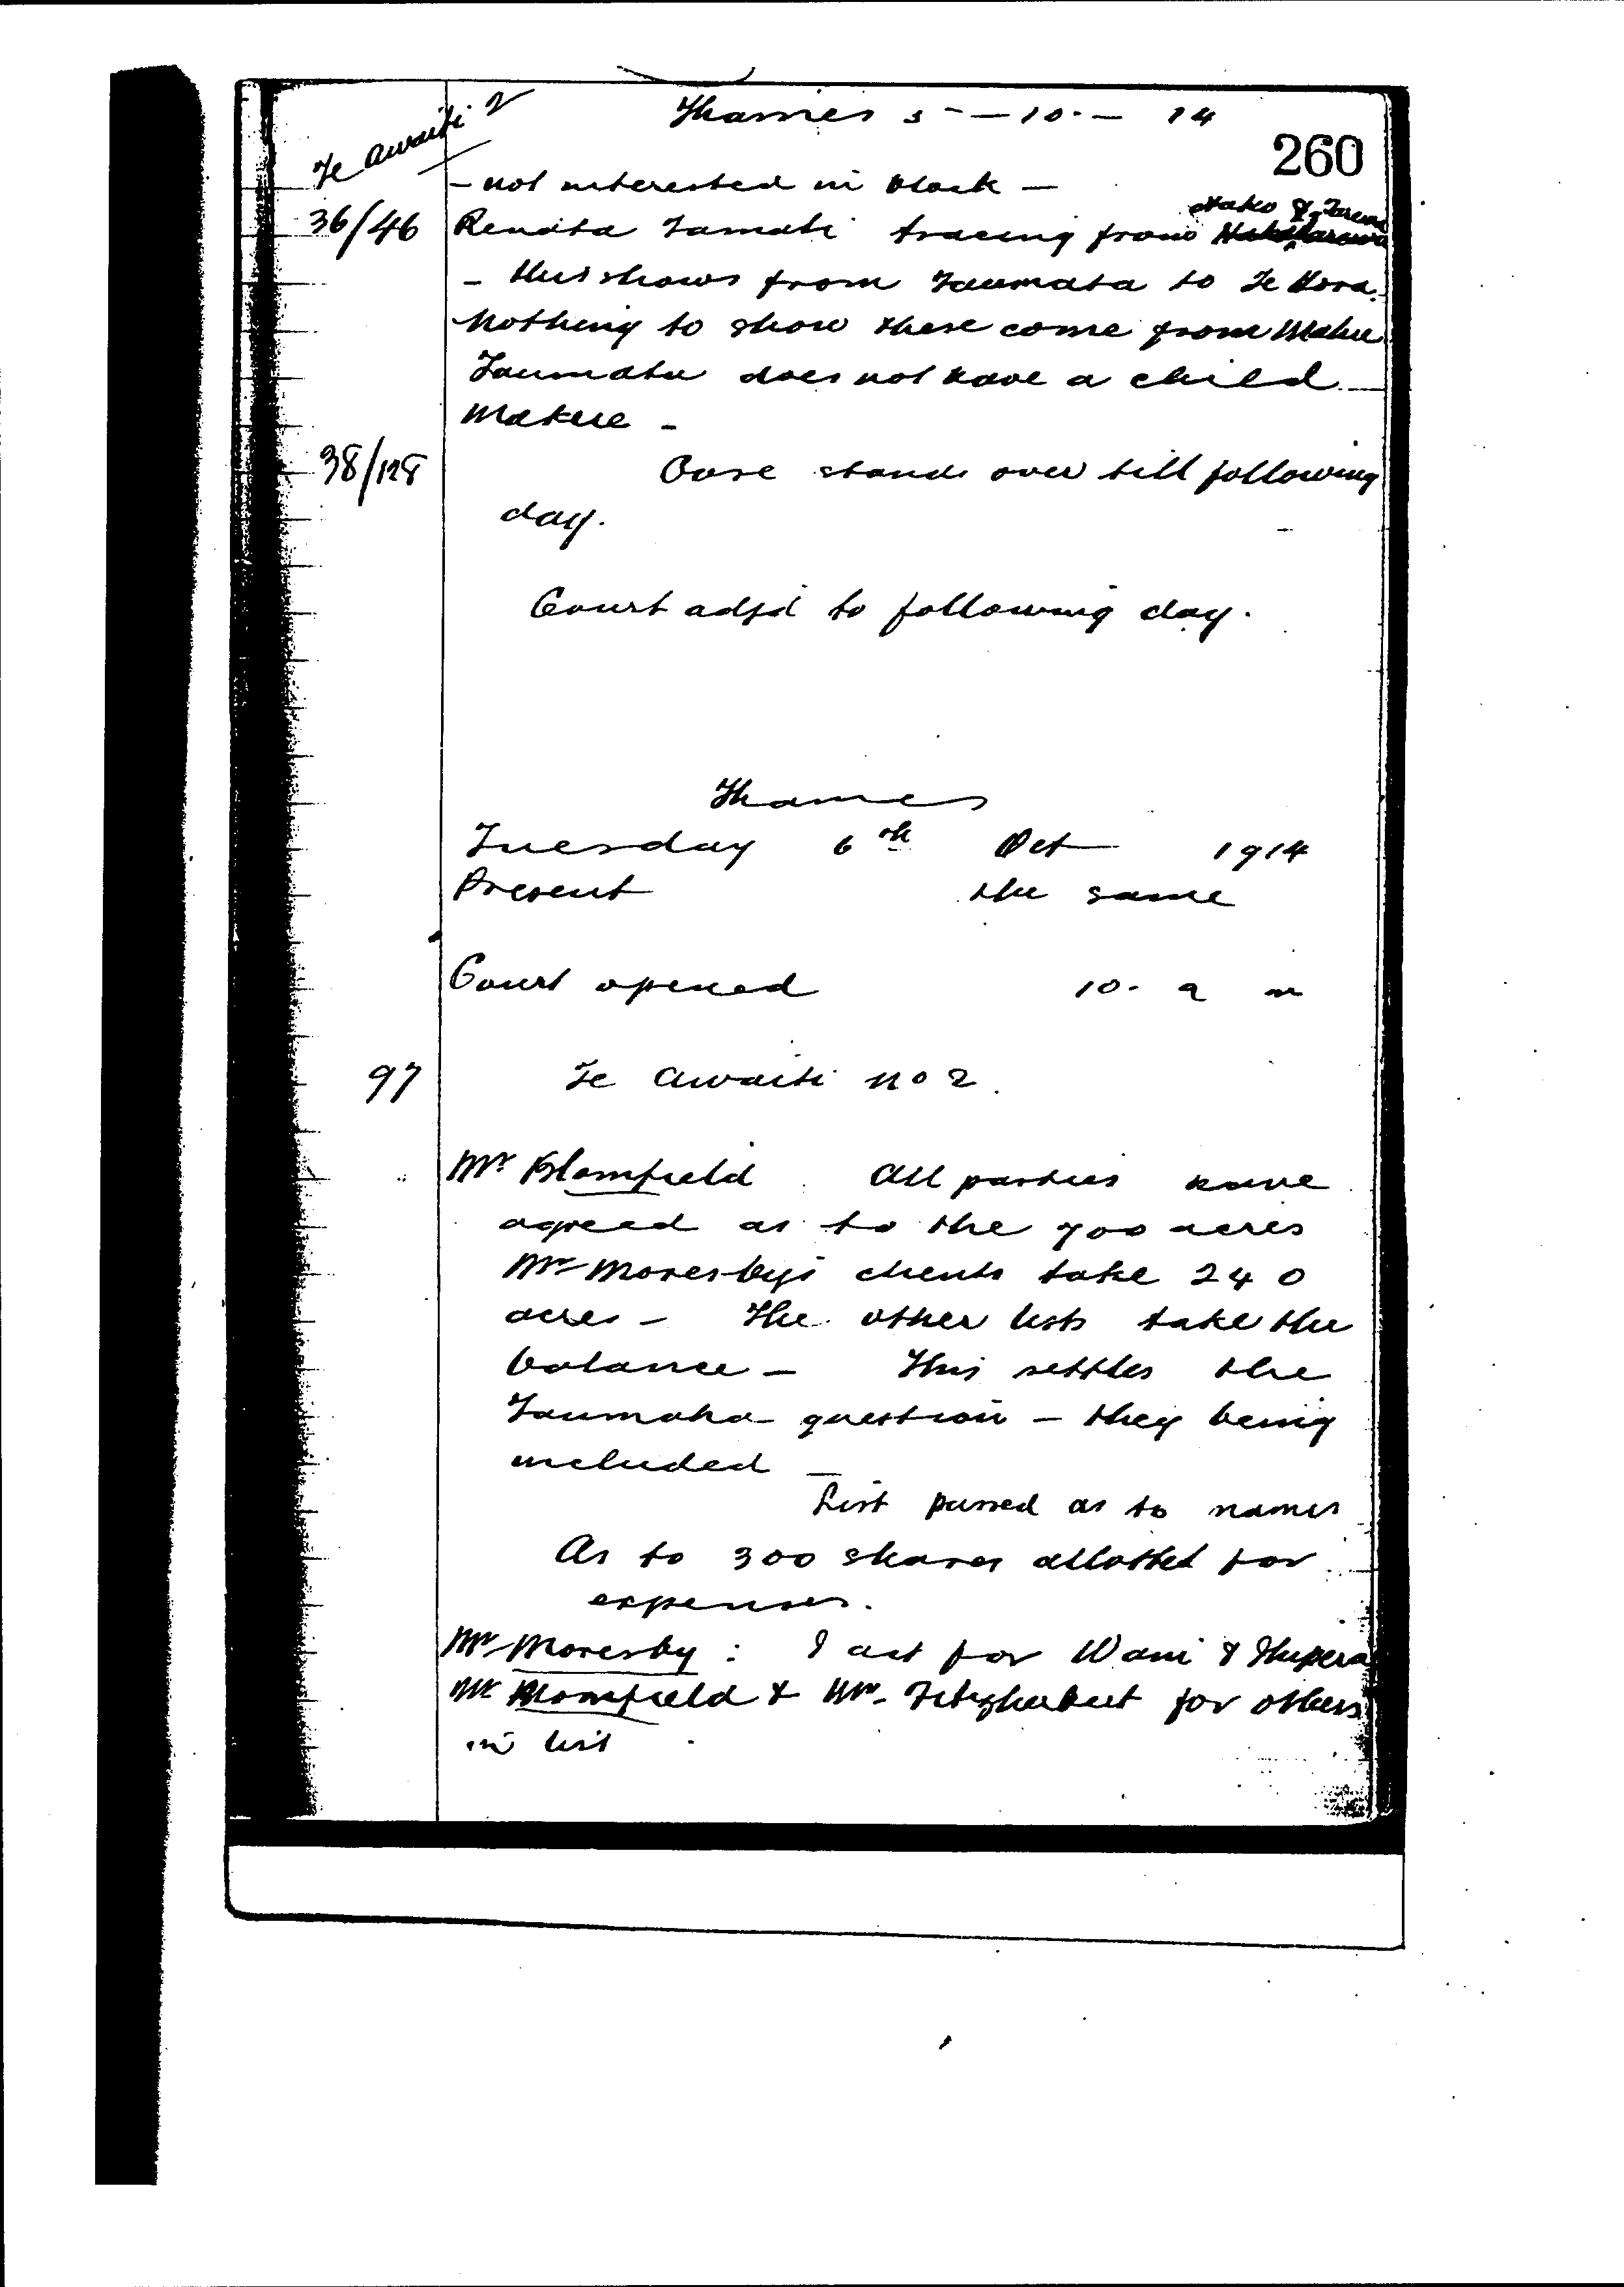 Te Awaiti 2
Thames 5 - 10 - 14
260
- not interested in block -
Hako & Tarawa
36/46 Renata Tamati tracing from
- this shows from Taumata to Te Hora.
Nothing to show these come from Makue
Taumata does not have a child
Makue -
38/128 Case stands over till following
day.
Court adjd to following day.
Thames
Tuesday 6th Oct 1914
Present the same
Court opened 10. a m
97 Te Awaiti No 2.
Mr Blomfield All parties have
agreed as to the 700 acres
Mr Moresby's clients take 240
acres - The other lists take the
balance - This settles the
Taumaha question - they being
included -
List passed as to names
As to 300 shares allotted for
expenses.
Mr Moresby: I act for Wani &
Mr Blomfield & Mr. Fitzherbert for others
in list